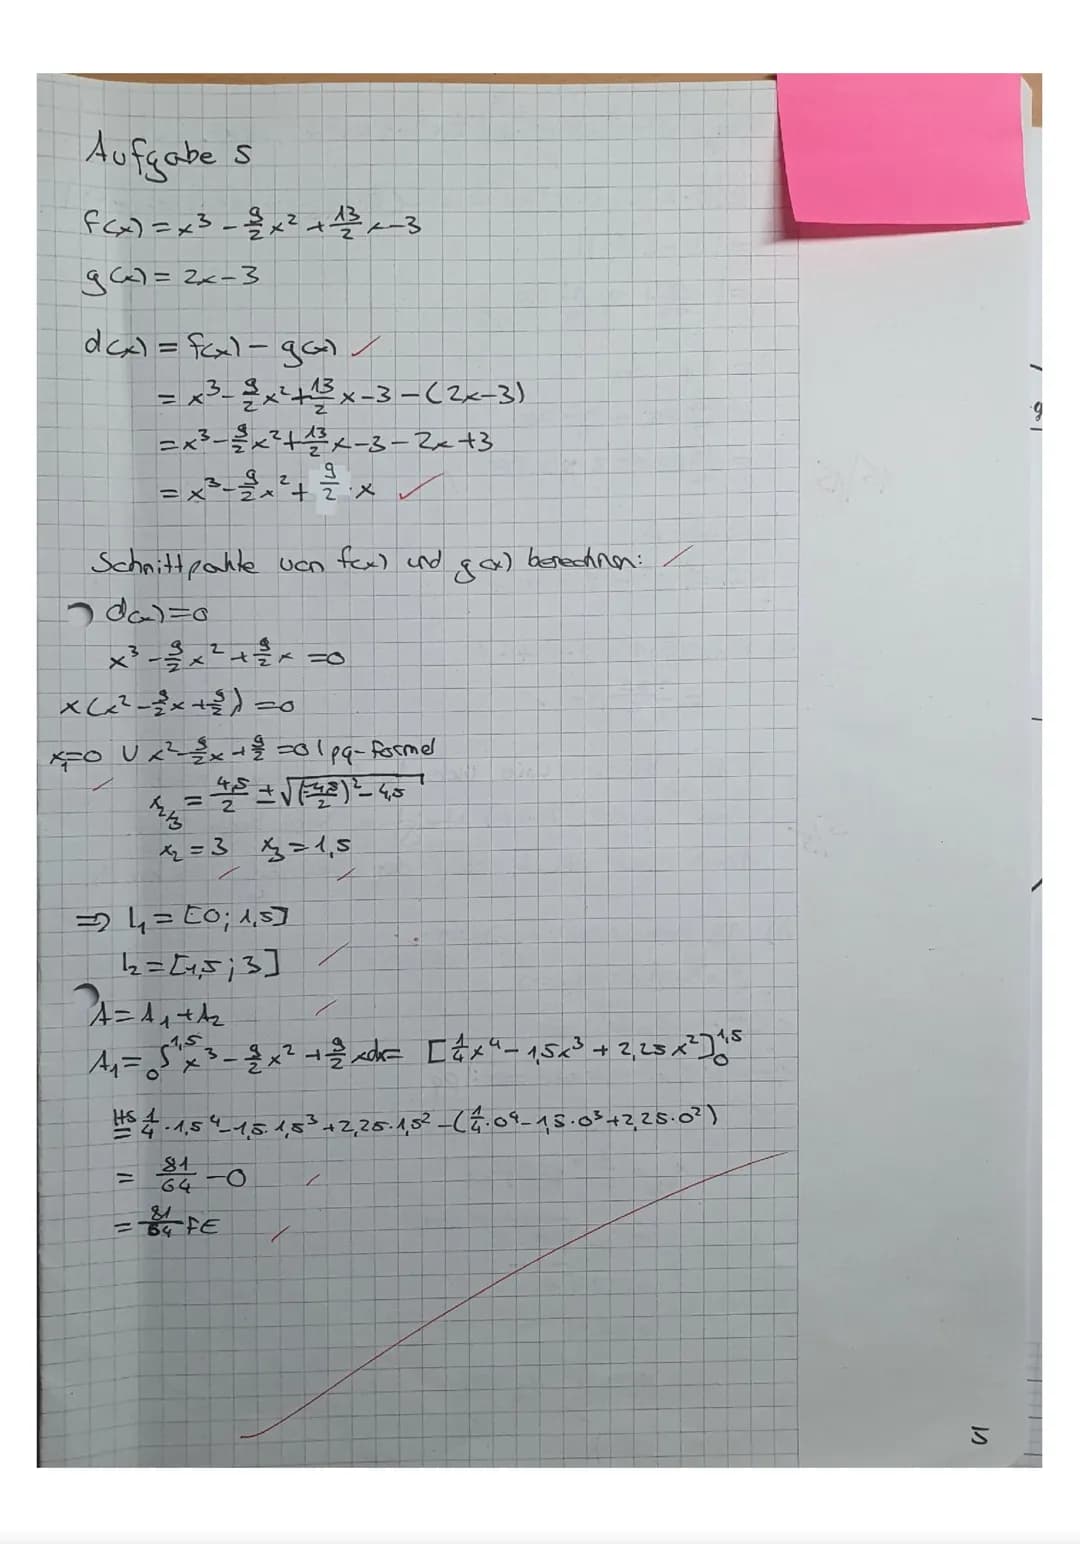 Aufgabe 5
f(x) = x³ - 9/2 x² + 13/2 x - 3
g(x) = 2x - 3
d(x) = f(x) - g(x)
= x³ - 9/2 x² + 13/2 x - 3 - (2x - 3)
= x³ - 9/2 x² + 13/2 x - 3 - 2x + 3
= x³ - 9/2 x² + 9/2 · x
Schnittpunkte von f(x) und g(x) berechnen:
d(x) = 0
x³ - 9/2 x² + 9/2 x = 0
x(x² - 9/2 x + 9/2) = 0
x₁=0 ∪ x² - 9/2 x + 9/2 = 0 | pq-Formel
x₂/₃ = 4,5/2 ± √((-4,5/2)² - 4,5)
x₂ = 3 x₃ = 1,5
⇒ I₁ = [0; 1,5]
I₂ = [1,5; 3]
A = A₁ + A₂
A₁ = ₀∫^1,5 x³ - 9/2 x² + 9/2 x dx = [1/4 x⁴ - 1,5x³ + 2,25x²]₀^1,5
HS= 1/4 · 1,5⁴ - 1,5 · 1,5³ + 2,25 · 1,5² - (1/4 · 0⁴ - 1,5 · 0³ + 2,25 · 0²)
= 81/64 - 0
= 81/64 FE
5